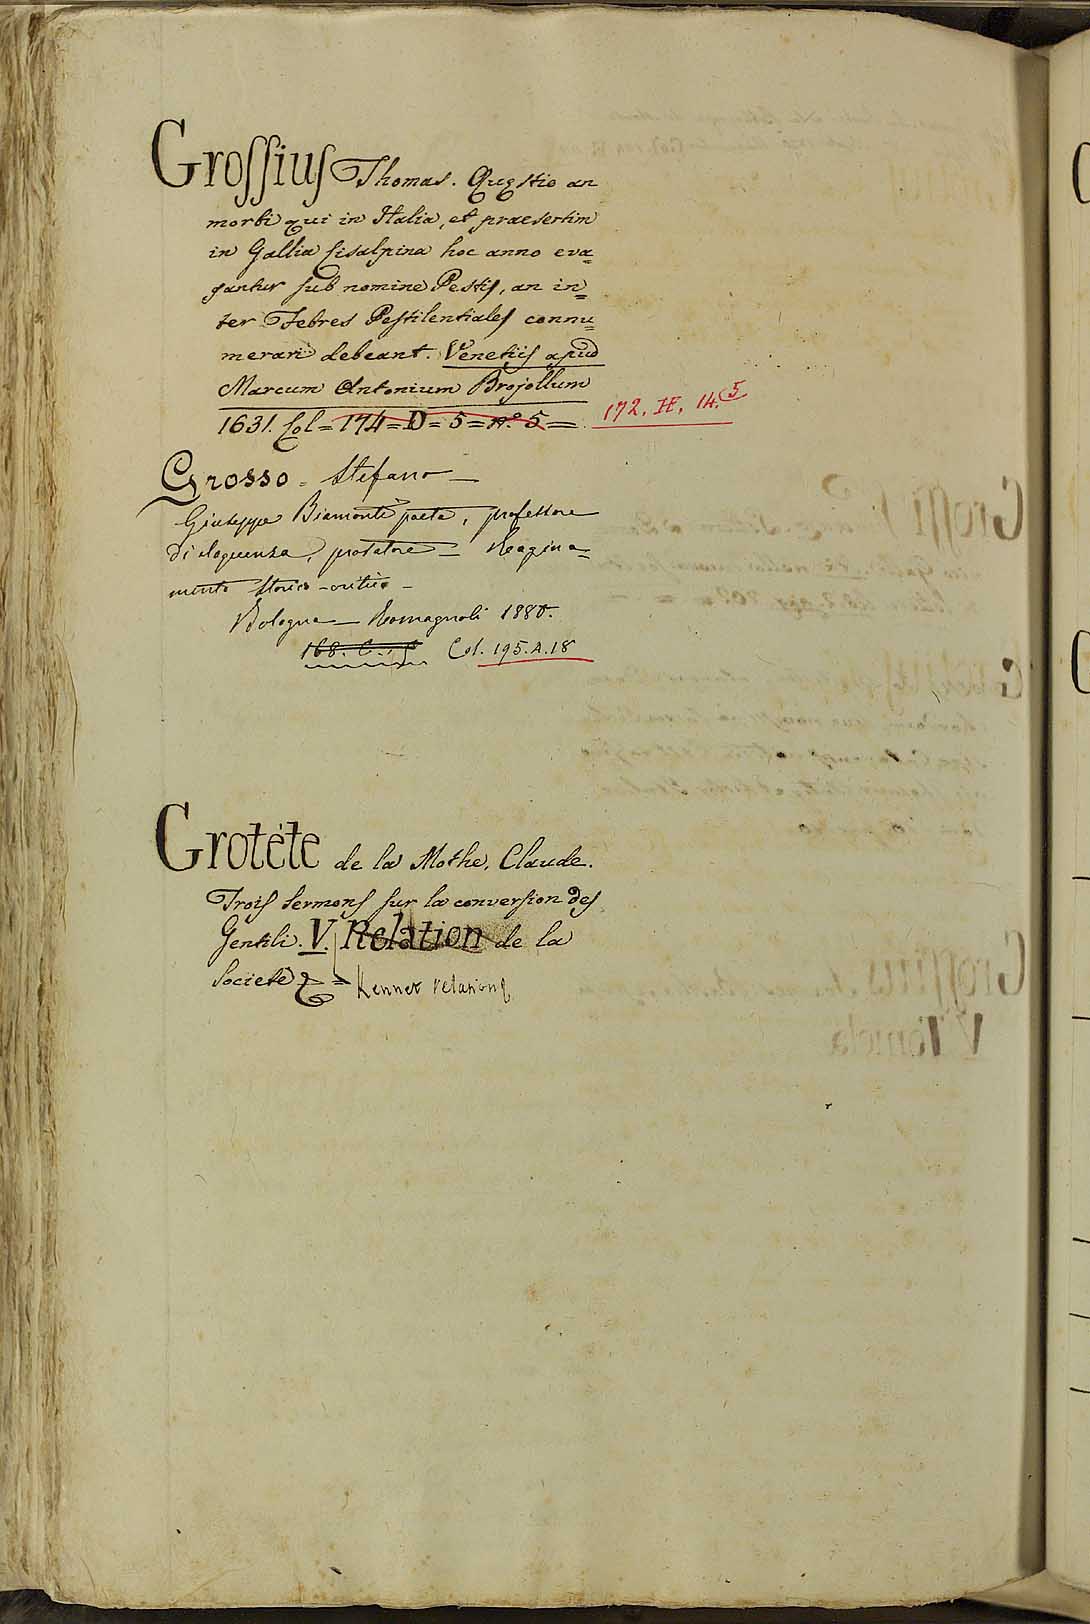 Grossius Thomas. Quęstio an
morbi qui in Italia, et praesertim
in Gallia Cisalpina hoc anno eva=
gantur sub nomine Pestis, an in=
ter Febres Pestilentiales connu=
merari debeant. Venetiis apud
Marcum Antonium Brojollum
1631. Col = 174 = D = 5 = n.° 5 = 172. H. 14.5
Grosso = Stefano —
Giuseppe Biamonti poeta, professore
di eloquenza, prosatore — Ragiona=
mento storico-critico —
Bologna — Romagnoli 1880.
168. C. Col. 195.A.18
Grotête de la Mothe, Claude.
Trois Sermons sur la conversion des
Gentili. V. Relation de la
Societé &c =
Kennet relations